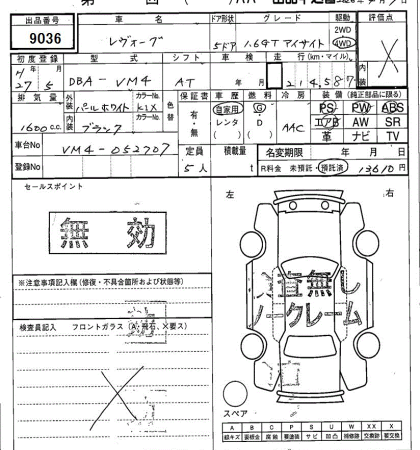 出品番号 車名 ドア形状 グレード 駆動 評価点
9036 レヴォーグ 5ドア 1.6GT アイサイト 2WD 4WD
初度登録 型式 シフト 車検 走行(km・マイル) 内装
27年5月 DBA-VM4 AT 年 月
排気量 外装 パールホワイト カラーNo. K1X 色替 保証書 車歴 燃料 冷房 装備(純正部品に限る)
1600cc 内装 ブラック カラーNo. 有・無 自家用 レンタ G・D AAC PS PW ABS
エアB AW SR
革 ナビ TV
車台No VM4-052707 定員 積載量 名変期限 年 月 日
登録No 5人 t R料金 未預託・預託済 13610円
セールスポイント 左 右
無効
検査無し
ノークレーム
※注意事項記入欄(修復・不具合箇所および状態等)
検査員記入 フロントガラス(A・飛石、X要ス)
スペア
A B C P S U W XX X
線キズ 要板金 腐蝕 要塗装 サビ 凹 補修跡 交換跡 要交換